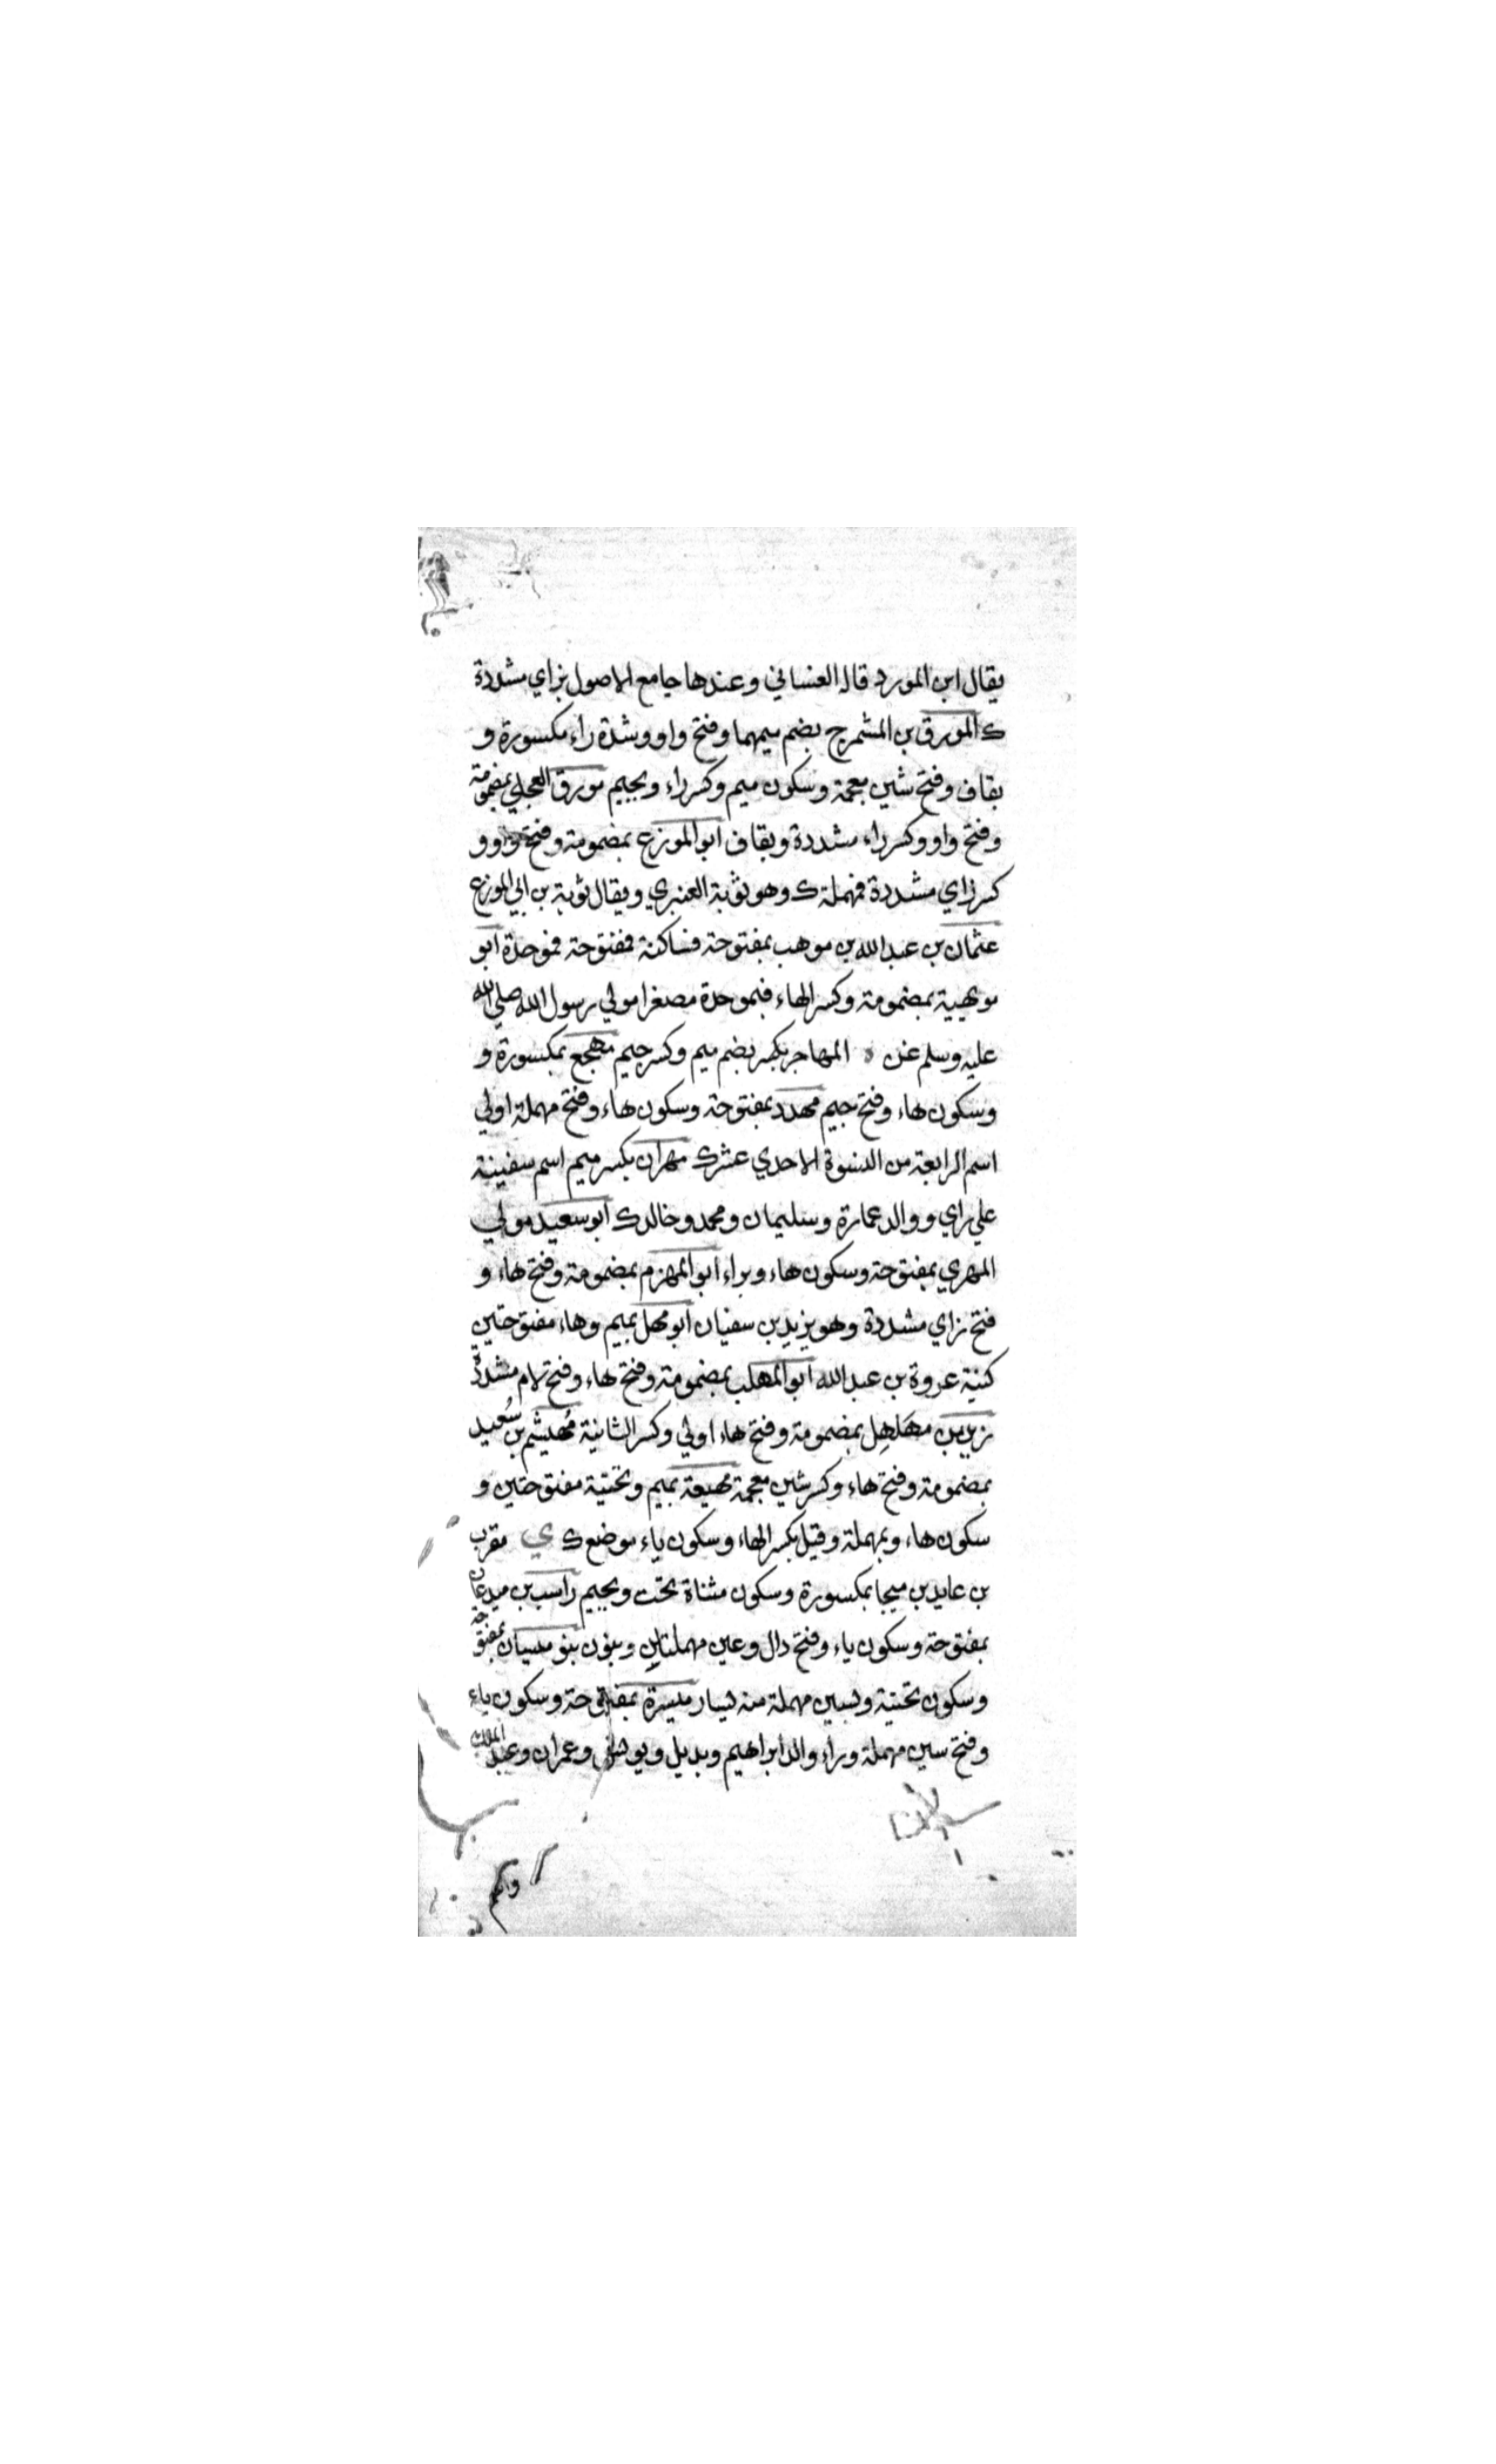 يقال ابن المورد قاله الغساني وعندها جامع الاصول بزاي مشددة
ك المورق بن المشمرج بضم ميمهما وفتح واو وشدة راء مكسورة و
بقاف وفتح شين معجمة وسكون ميم وكسر راء وبجيم مورق العجلي بمضمومة
وفتح واو وكسر راء مشددة وبقاف ابو المورع بمضمومة وفتح واو و
كسر زاي مشددة فمهملة ك وهو توبة العنبري ويقال توبة بن ابي المورع
عثمان بن عبد الله بن موهب بمفتوحة فساكنة فمفتوحة فموحدة ابو
مويهبة بمضمومة وكسر الهاء فبموحدة مصغرا مولي رسول الله صلي الله
عليه وسلم غن المهاجر بكسر بضم ميم وكسر جيم مهجع بمكسورة و
وسكون هاء وفتح جيم مهدد بمفتوحة وسكون هاء وفتح مهملة اولي
اسم الرابعة من النسوة الاحدي عشر ك مهران بكسر ميم اسم سفينة
علي راي ووالد عمارة وسليمان ومحمد وخالد ك ابو سعيد مولي
المهري بمفتوحة وسكون هاء وبراء ابو المهزم بمضمومة وفتح هاء و
فتح زاي مشددة وهو يزيد بن سفيان ابو مهل بميم وهاء مفتوحتين
كنية عروة بن عبد الله ابو المهلب بمضمومة وفتح هاء وفتح لام مشددة
بن مهلهل بمضمومة وفتح هاء اولي وكسر الثانية مهيشم بن سعيد
بمضمومة وفتح هاء وكسر شين معجمة مهيعة بميم وتحتية مفتوحتين و
سكون هاء وبمهملة وقيل بكسر الهاء وسكون ياء موضع ك ي مقرب
بن عايد بن ميجا بمكسورة وسكون مثناة تحت وبجيم راسب بن ميدعان
بمفتوحة وسكون ياء وفتح دال وعين مهملتاين وبنون بنو ميسان بمفتوحة
وسكون تحتية وبسين مهملة منه يسار ميسرة بمفتوحة وسكون ياء
وفتح سين مهملة وراء والد ابراهيم وبديل ويونس وعمران وعبد الملك